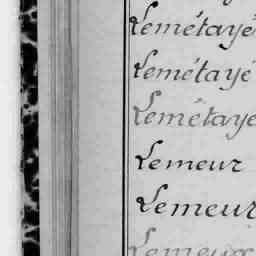 Lemétayé
Lemétayé
Lemétaye
Lemeur
Lemeur